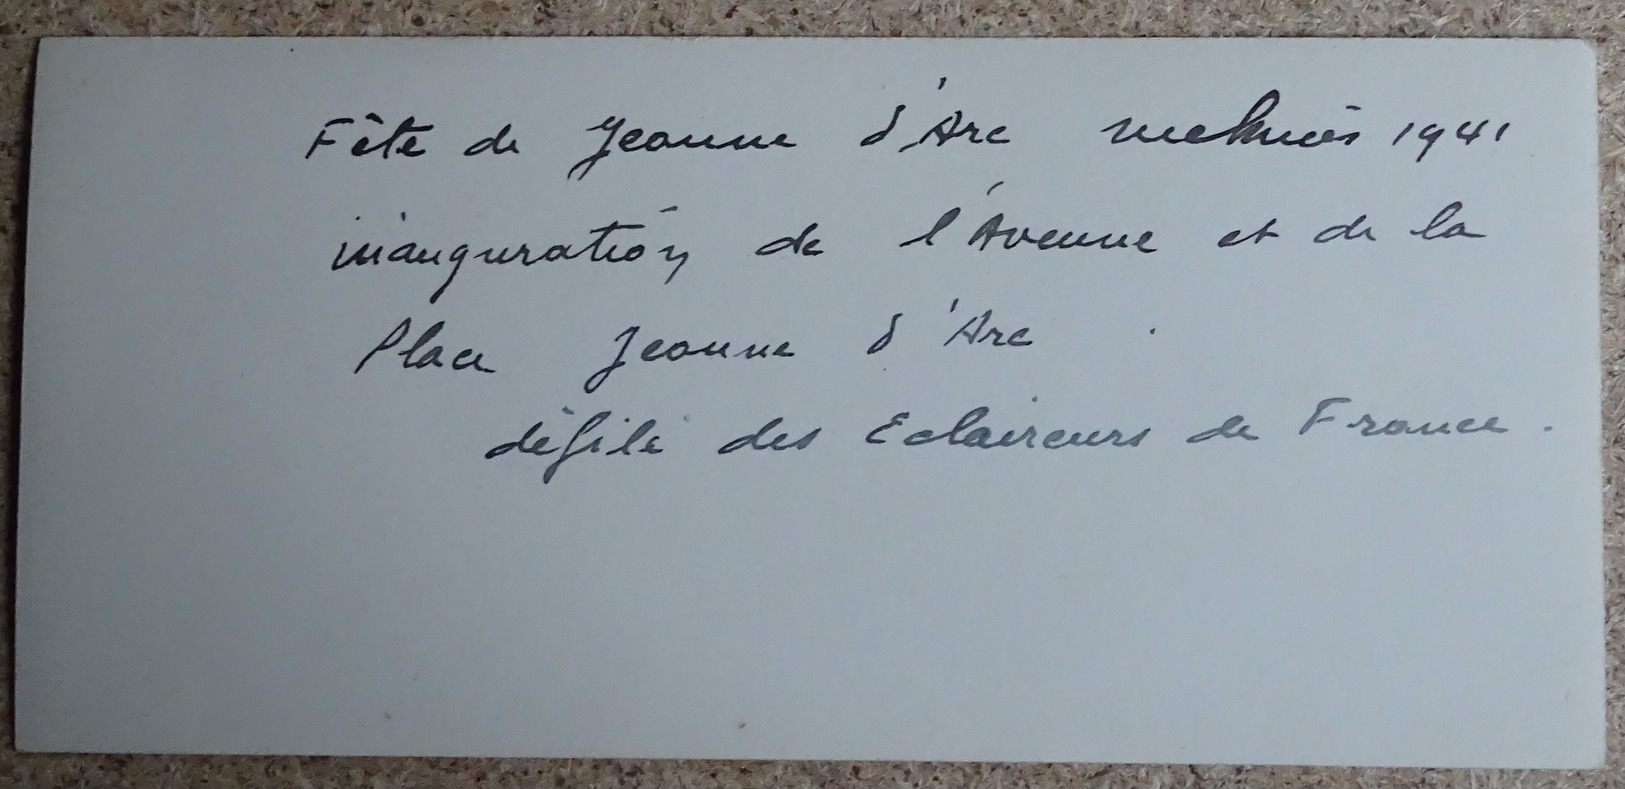 Fête de Jeanne d'Arc meknès 1941
inauguration de l'Avenue et de la
Place Jeanne d'Arc
défilé des Eclaireurs de France.